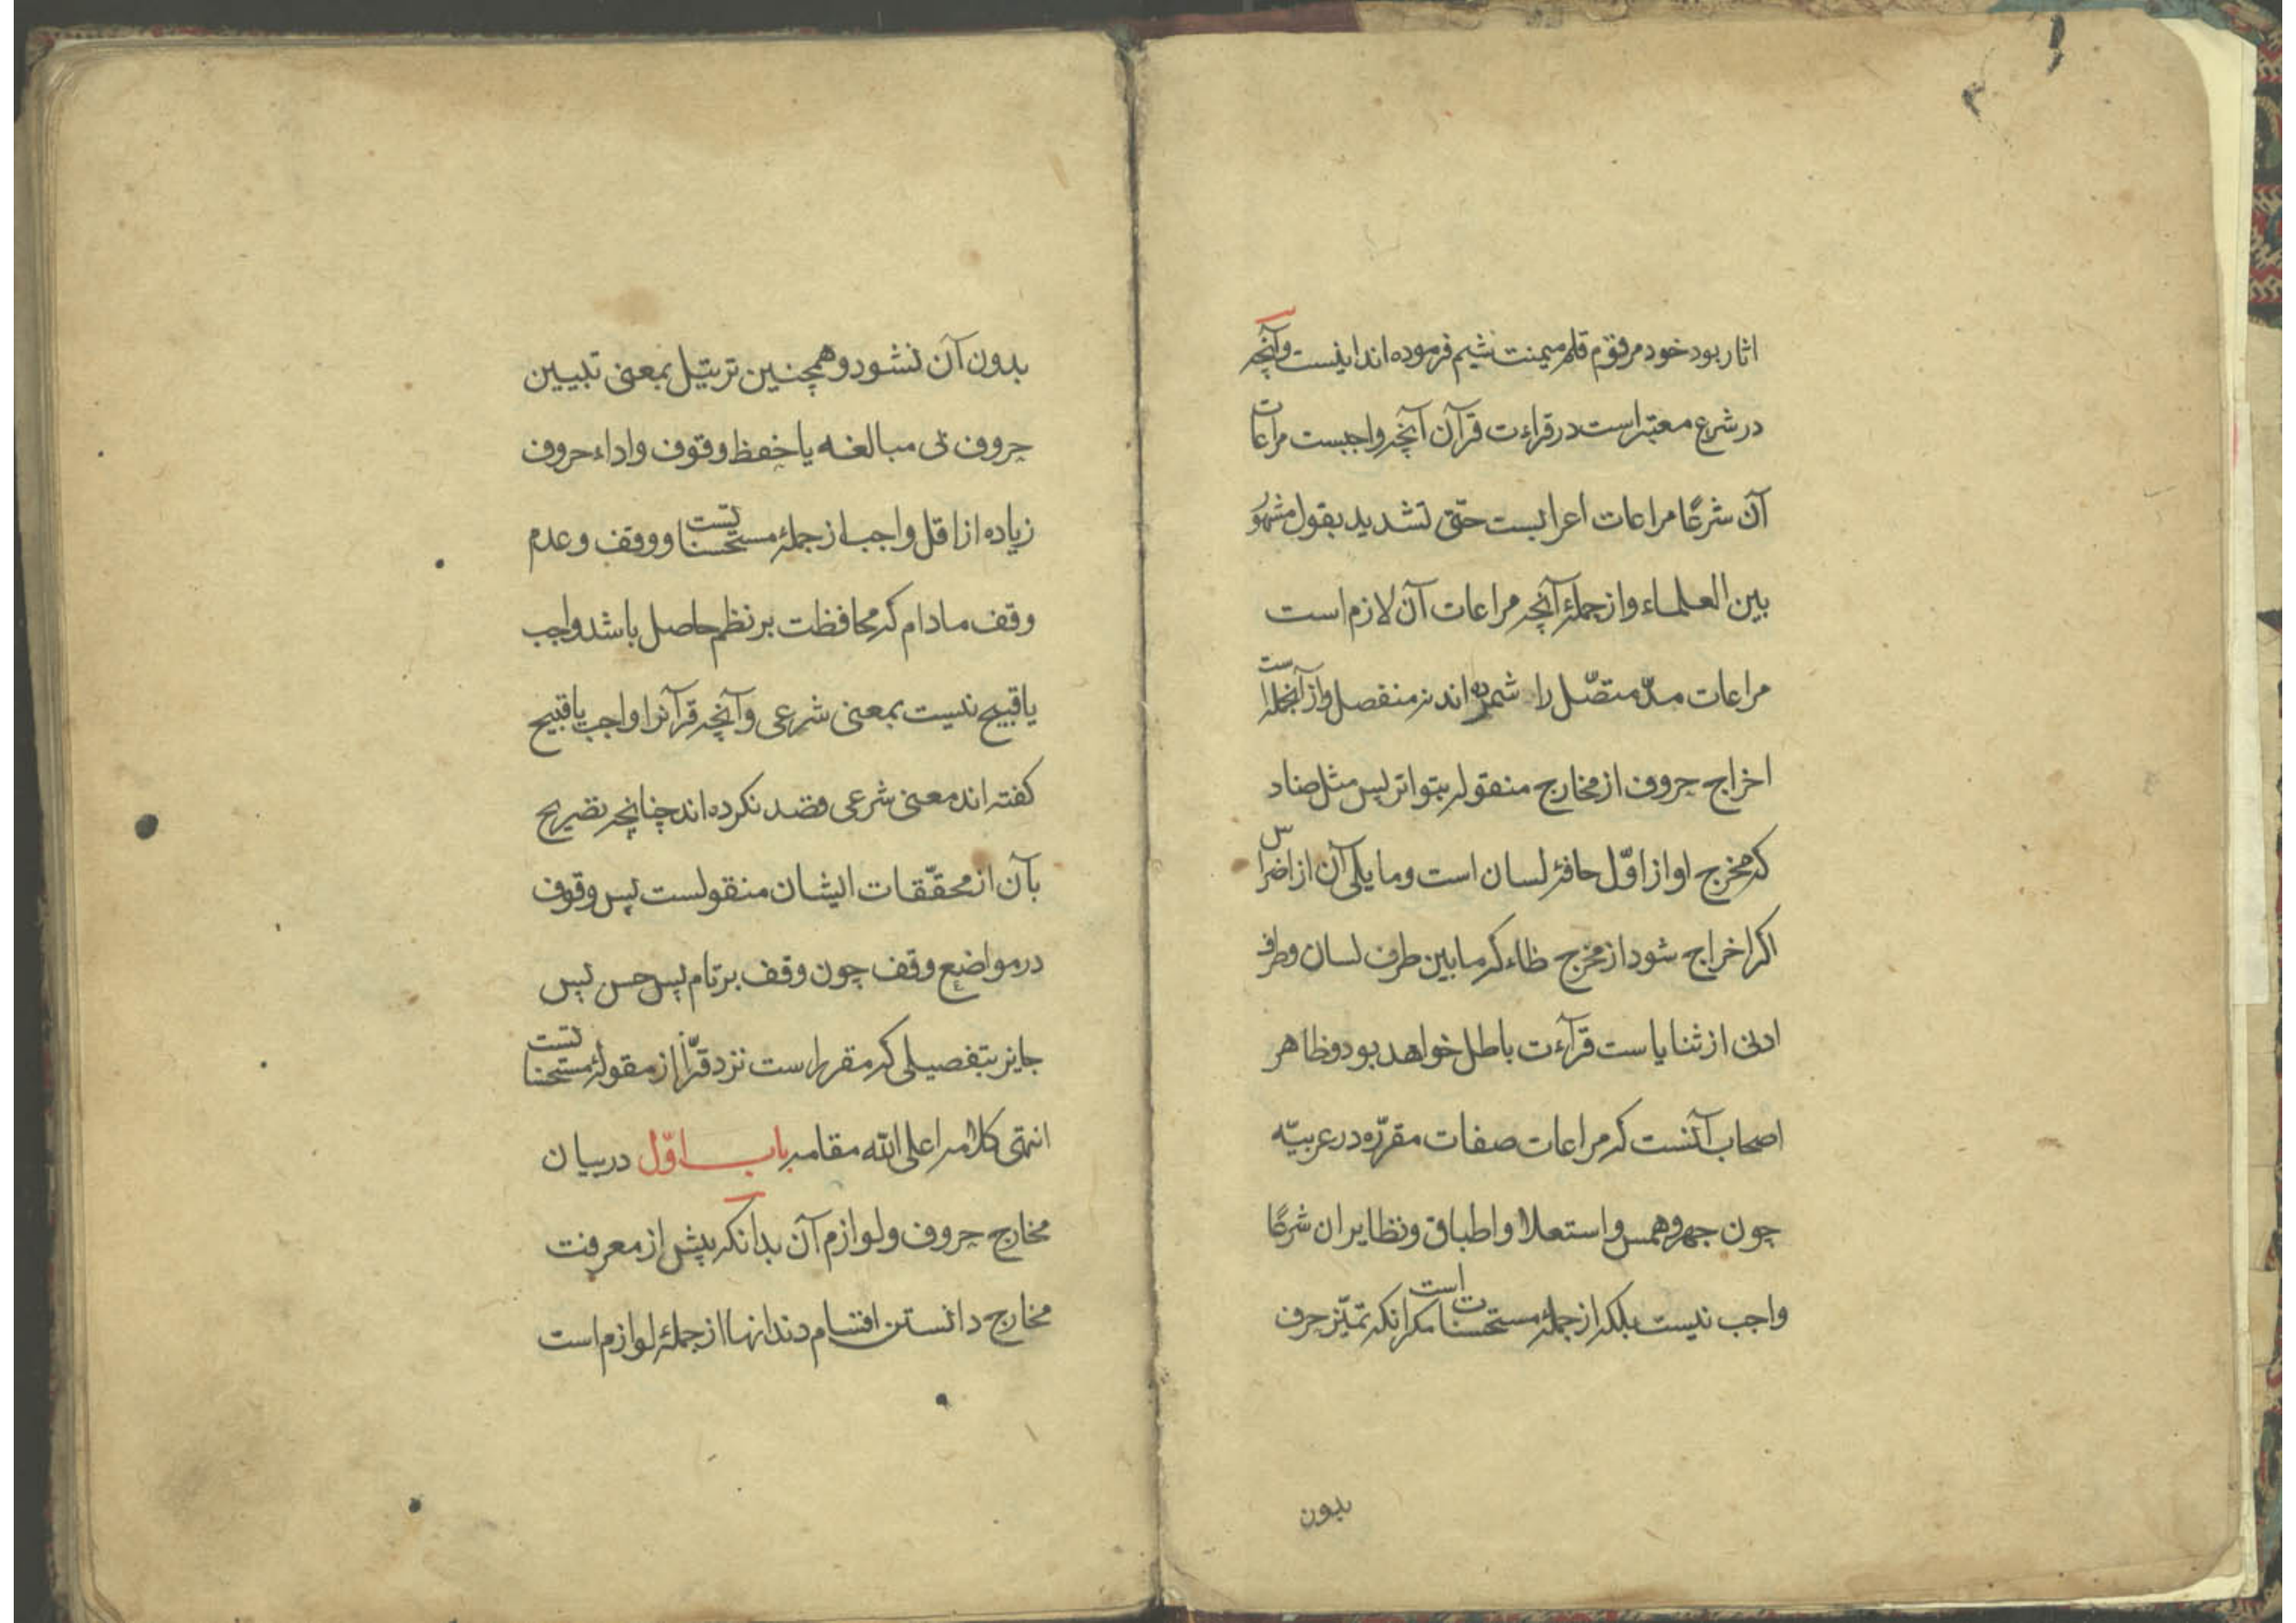 اثار بود خود مرقوم قلم میمنت شیم فرموده اند اینست وآنچه
در شرع معتبر است در قراءت قرآن آنچه واجبست مراعات
آن شرعًا مراعات اعرابست حتّی تشدید بقول مشهور
بین العلماء واز جملهٔ آنچه مراعات آن لازم است
مراعات مدّ متصّل را شمرده اند نه منفصل واز آنجمله است
اخراج حروف از مخارج منقوله بتواتر پس مثل ضاد
که مخرج او از اوّل حافهٔ لسان است وما یلی آن از اضراس
اکر اخراج شود از مخرج ظاء که ما بین طرف لسان وطرف
ادنی از ثنایاست قرآءت باطل خواهد بود وظاهر
اصحاب آنست که مراعات صفات مقرّره در عربیّه
چون جهر وهمس واستعلا واطباق ونظایر ان شرعًا
واجب نیست بلکه از جملهٔ مستحسنات است مکر انکه تمیّز حرف
بدون
بدون آن نشود وهمچنین ترتیل بمعنی تبیین
حروف بی مبالغه یا حفظ وقوف واداء حروف
زیاده از اقل واجب از جملهٔ مستحسناتست ووقف وعدم
وقف مادام که محافظت بر نظم حاصل باشد واجب
یا قبیح نیست بمعنی شرعی وآنچه قرآنرا واجب یا قبیح
کفته اند معنی شرعی قصد نکرده اند چنانچه تصریح
بآن از محقّقات ایشان منقولست پس وقوف
در مواضع وقف چون وقف بر تام پس حسن پس
جایز بتفصیلی که مقرر است نزد قرّا از مقولهٔ مستحسناتست
انتهی کلامه اعلی الله مقامه باب اوّل در بیان
مخارج حروف ولوازم آن بدانکه پیش از معرفت
مخارج دانستن اقسام دندانها از جملهٔ لوازم است